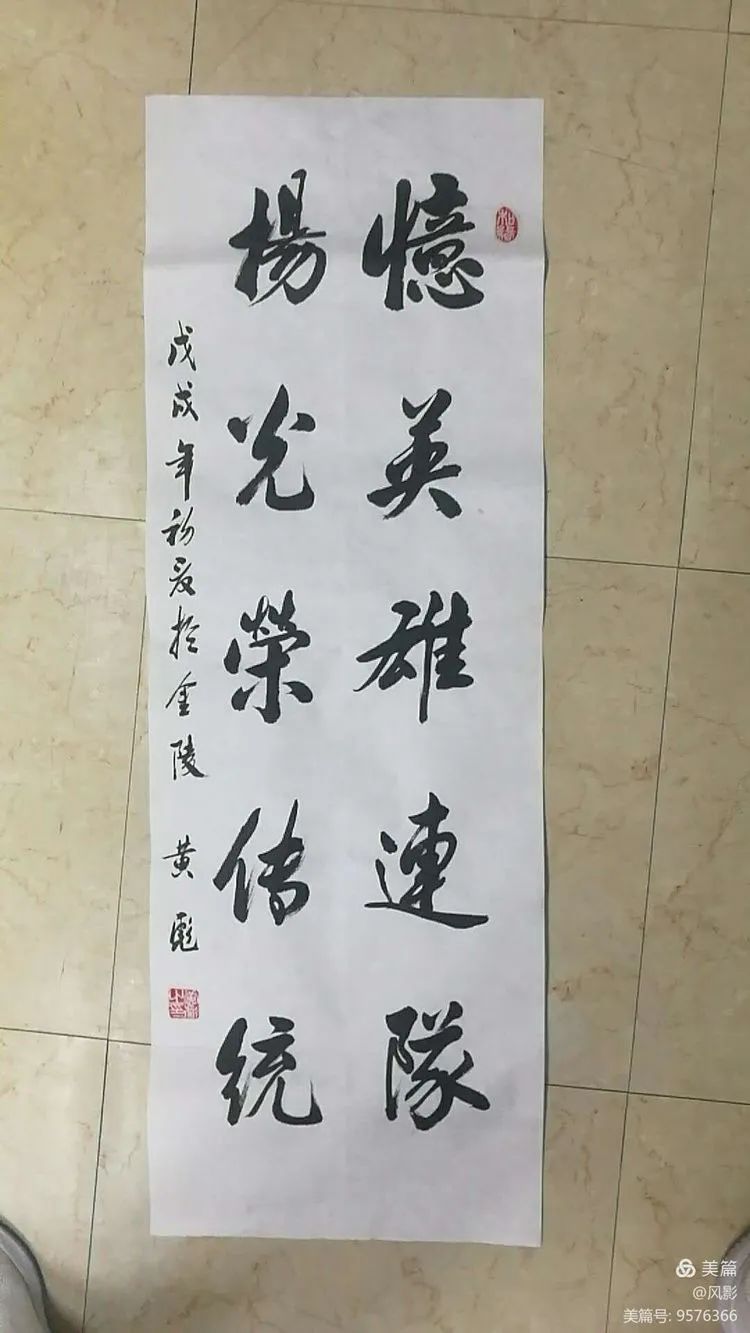 憶英雄連隊
楊光榮傳統
戊戌年初夏於金陵 黄彪
美篇
@风影
美篇号: 9576366